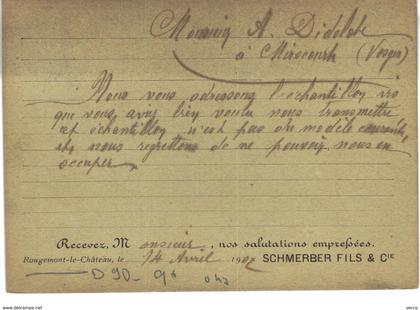 Monsieur A. Didelot
à Mirecourt (Vosges)
Nous vous adressons l'échantillon
que vous avez bien voulu nous transmettre
cet échantillon n'est pas du modèle courante,
et nous regrettons de ne pouvoir nous en
occuper.
Recevez, Monsieur, nos salutations empressées.
Rougemont-le-Château, le 14 Avril 1902 SCHMERBER FILS & CIE